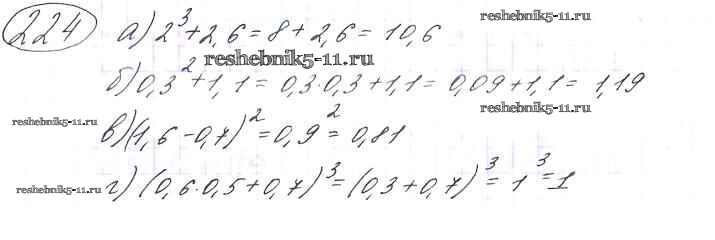 224 а) 2³+2,6=8+2,6=10,6
reshebnik5-11.ru
reshebnik5-11.ru
б) 0,3²+1,1=0,3·0,3+1,1=0,09+1,1=1,19
reshebnik5-11.ru
reshebnik5-11.ru
в) (1,6-0,7)²=0,9²=0,81
г) (0,6·0,5+0,7)³=(0,3+0,7)³=1³=1
reshebnik5-11.ru